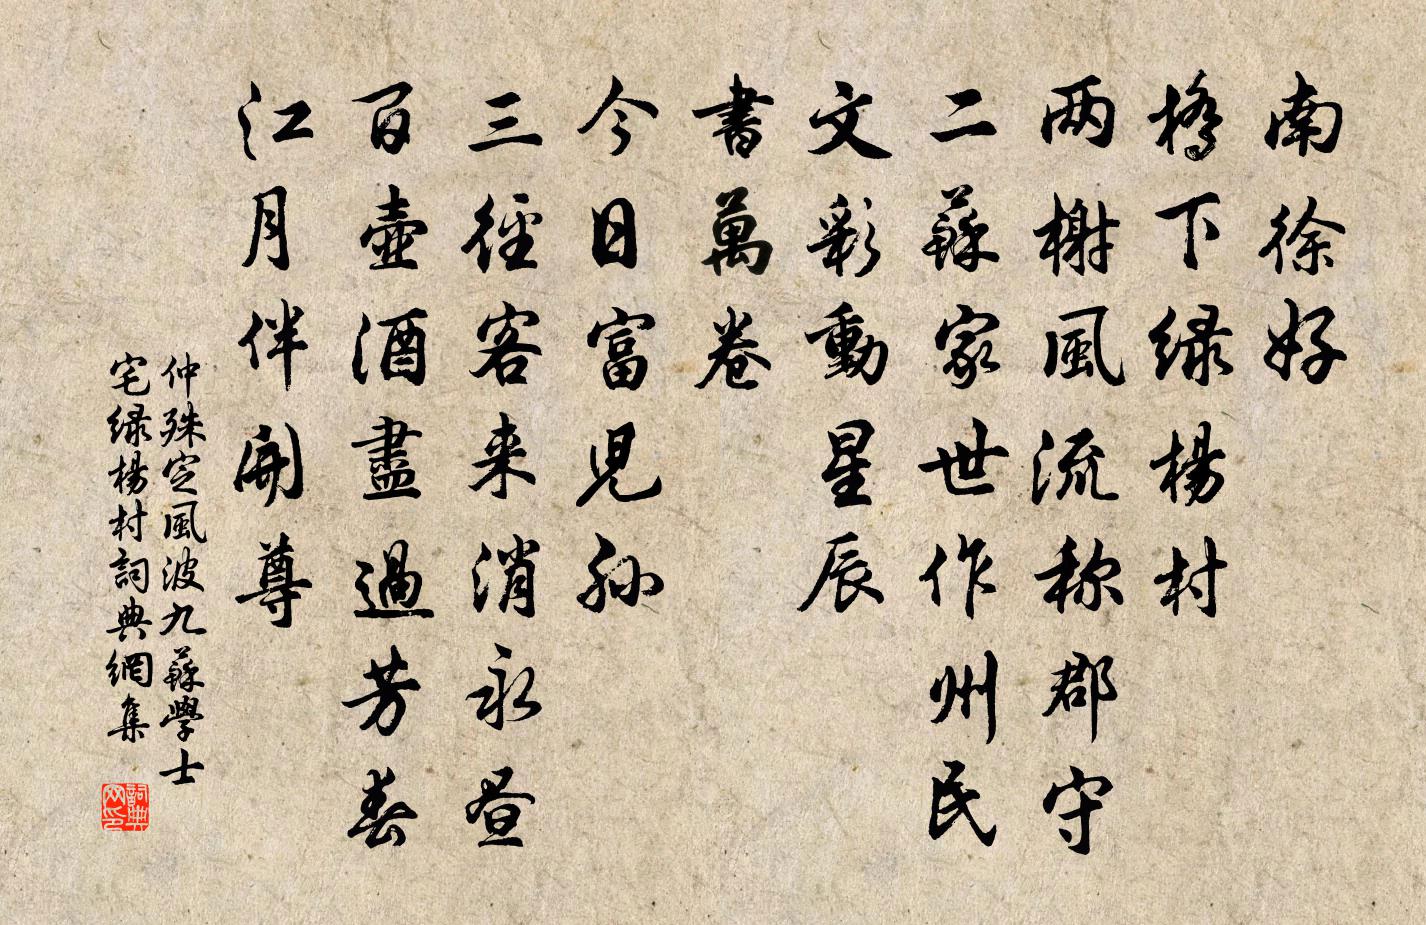 南徐好
橋下绿楊村
两榭風流称郡守
二蘇家世作州民
文彩動星辰
書萬卷
今日富兒孙
三徑客来消永昼
百壺酒盡過芳春
江月伴開尊
仲殊定風波九蘇學士
宅绿楊村詞典網集
詞典
网印